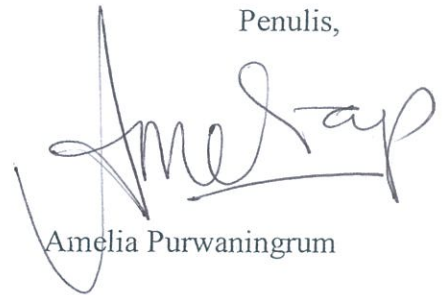 Penulis,
Amelia Purwaningrum